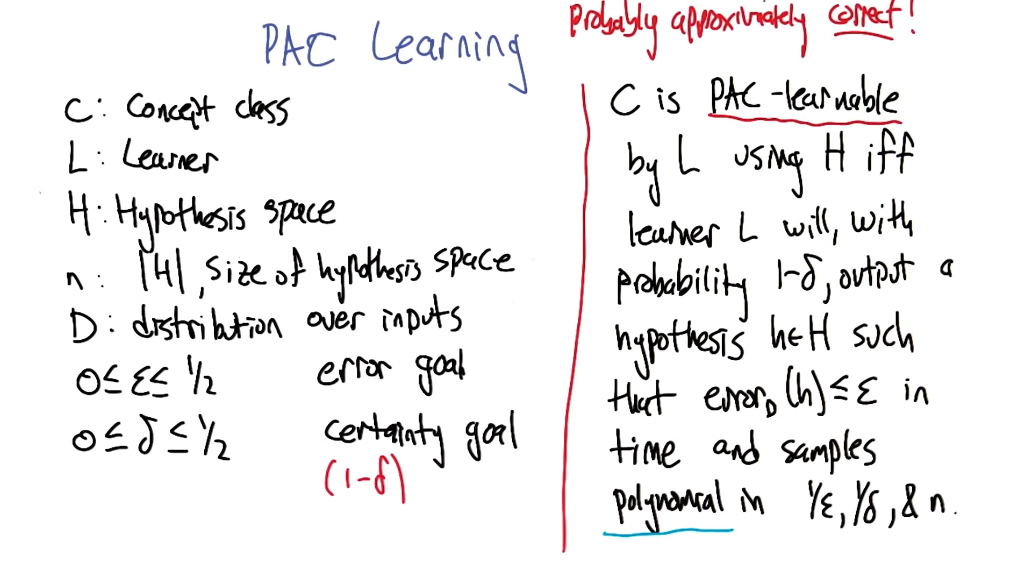 PAC Learning
Probably approximately correct!
C: Concept class
L: Learner
H: Hypothesis space
n: |H|, size of hypothesis space
D: distribution over inputs
0≤ε≤1/2 error goal
0≤δ≤1/2 certainty goal
(1-δ)
C is PAC-learnable
by L using H iff
learner L will, with
probability 1-δ, output a
hypothesis h∈H such
that error_D(h)≤ε in
time and samples
polynomial in 1/ε, 1/δ, & n.